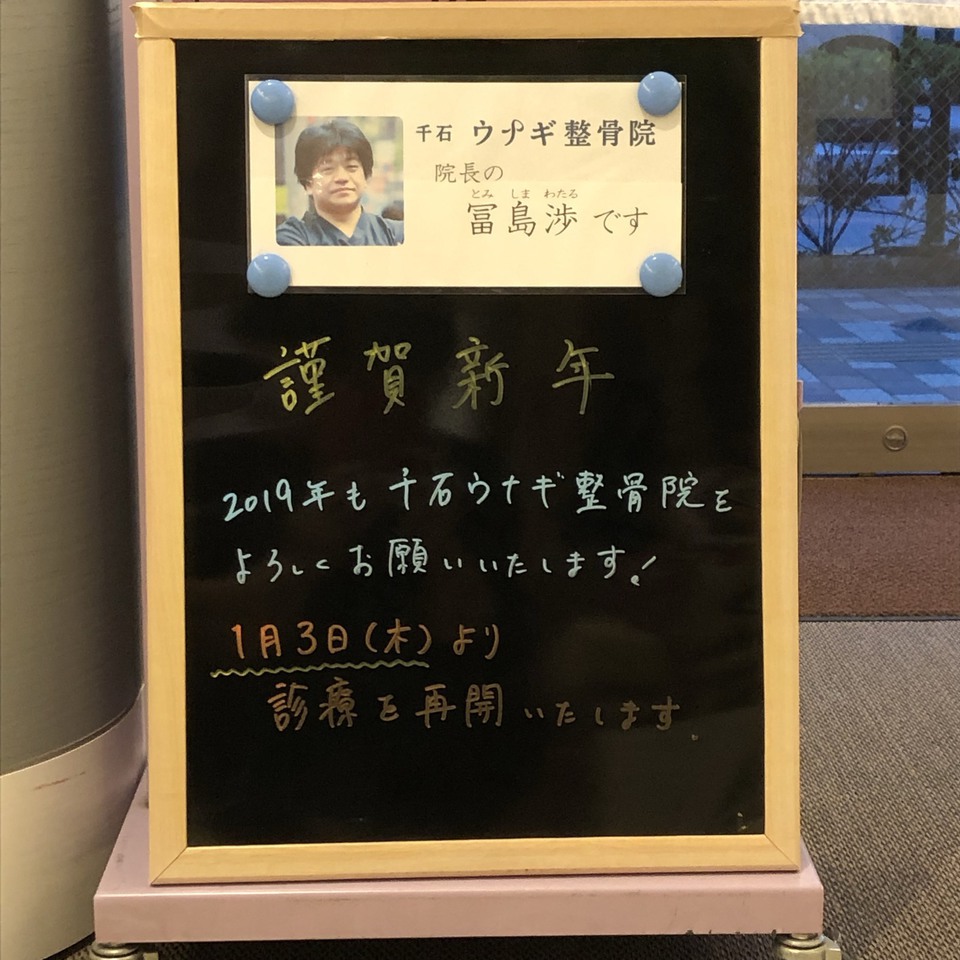 千石 ウナギ整骨院
院長の
とみ しま わたる
冨島渉です
謹賀新年
2019年も千石ウナギ整骨院を
よろしくお願いいたします!
1月3日(木)より
診療を再開いたします。